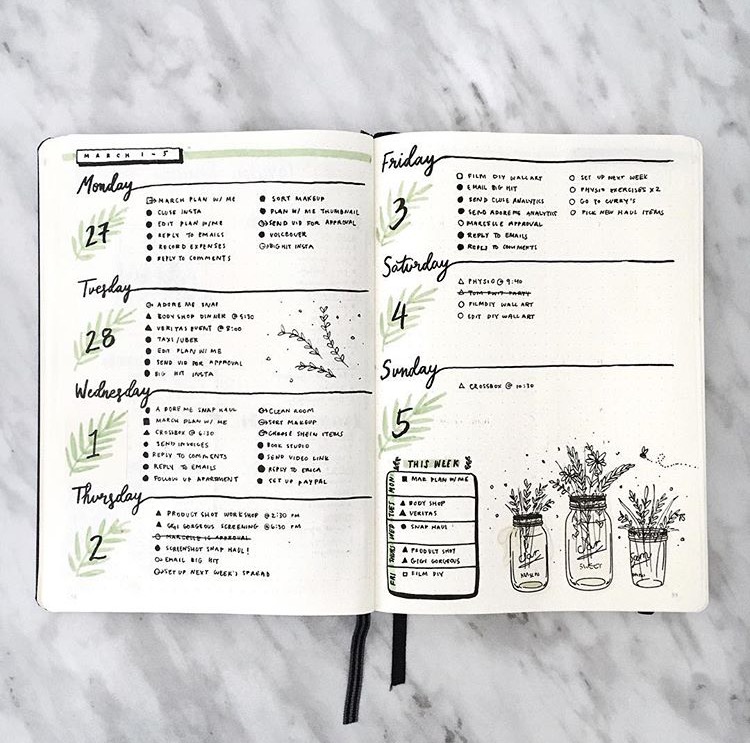 MARCH 1-5
Monday
27
MARCH PLAN W/ ME
CLUSE INSTA
EDIT PLAN W/ME
REPLY TO EMAILS
RECORD EXPENSES
REPLY TO COMMENTS
SORT MAKEUP
PLAN W/ ME THUMBNAIL
SEND VID FOR APPROVAL
VOICEOVER
BIG HIT INSTA
Tuesday
28
ADORE ME SNAP
BODY SHOP DINNER @ 5:30
VERITAS EVENT @ 8:00
TAXI/UBER
EDIT PLAN W/ ME
SEND VID FOR APPROVAL
BIG HIT INSTA
Wednesday
1
ADORE ME SNAP HAUL
MARCH PLAN W/ ME
CROSSBOX @ 6:30
SEND INVOICES
REPLY TO COMMENTS
REPLY TO EMAILS
FOLLOW UP APARTMENT
CLEAN ROOM
SORT MAKEUP
CHOOSE SHEIN ITEMS
BOOK STUDIO
SEND VIDEO LINK
REPLY TO ERICA
SET UP PAYPAL
Thursday
2
PRODUCT SHOT WORKSHOP @ 2:30 PM
GIGI GORGEOUS SCREENING @ 6:30 PM
MARCELLE IG APPROVAL
SCREENSHOT SNAP HAUL!
EMAIL BIG HIT
SET UP NEXT WEEK'S SPREAD
Friday
3
FILM DIY WALL ART
EMAIL BIG HIT
SEND CLUSE ANALYTICS
SEND ADOREME ANALYTICS
MARCELLE APPROVAL
REPLY TO EMAILS
REPLY TO COMMENTS
SET UP NEXT WEEK
PHYSIO EXERCISES X2
GO TO CURRY'S
PICK NEW HAUL ITEMS
Saturday
4
PHYSIO @ 9:40
FILM DIY WALL ART
EDIT DIY WALL ART
Sunday
5
CROSSBOX @ 10:30
THIS WEEK
MON
MAR PLAN W/ME
TUES
BODY SHOP
VERITAS
WED
SNAP HAUL
THURS
PRODUCT SHOT
GIGI GORGEOUS
FRI
FILM DIY
SWEET